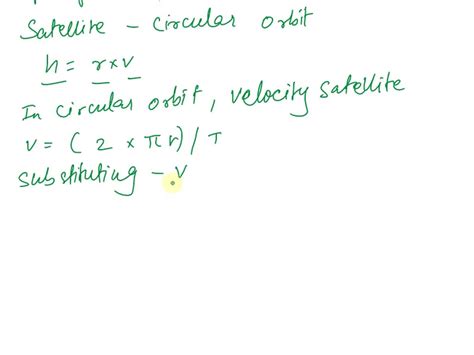 Satellite - circular orbit
h = r × v
In circular orbit, velocity satellite
v = ( 2 × πr) / T
substituting - v